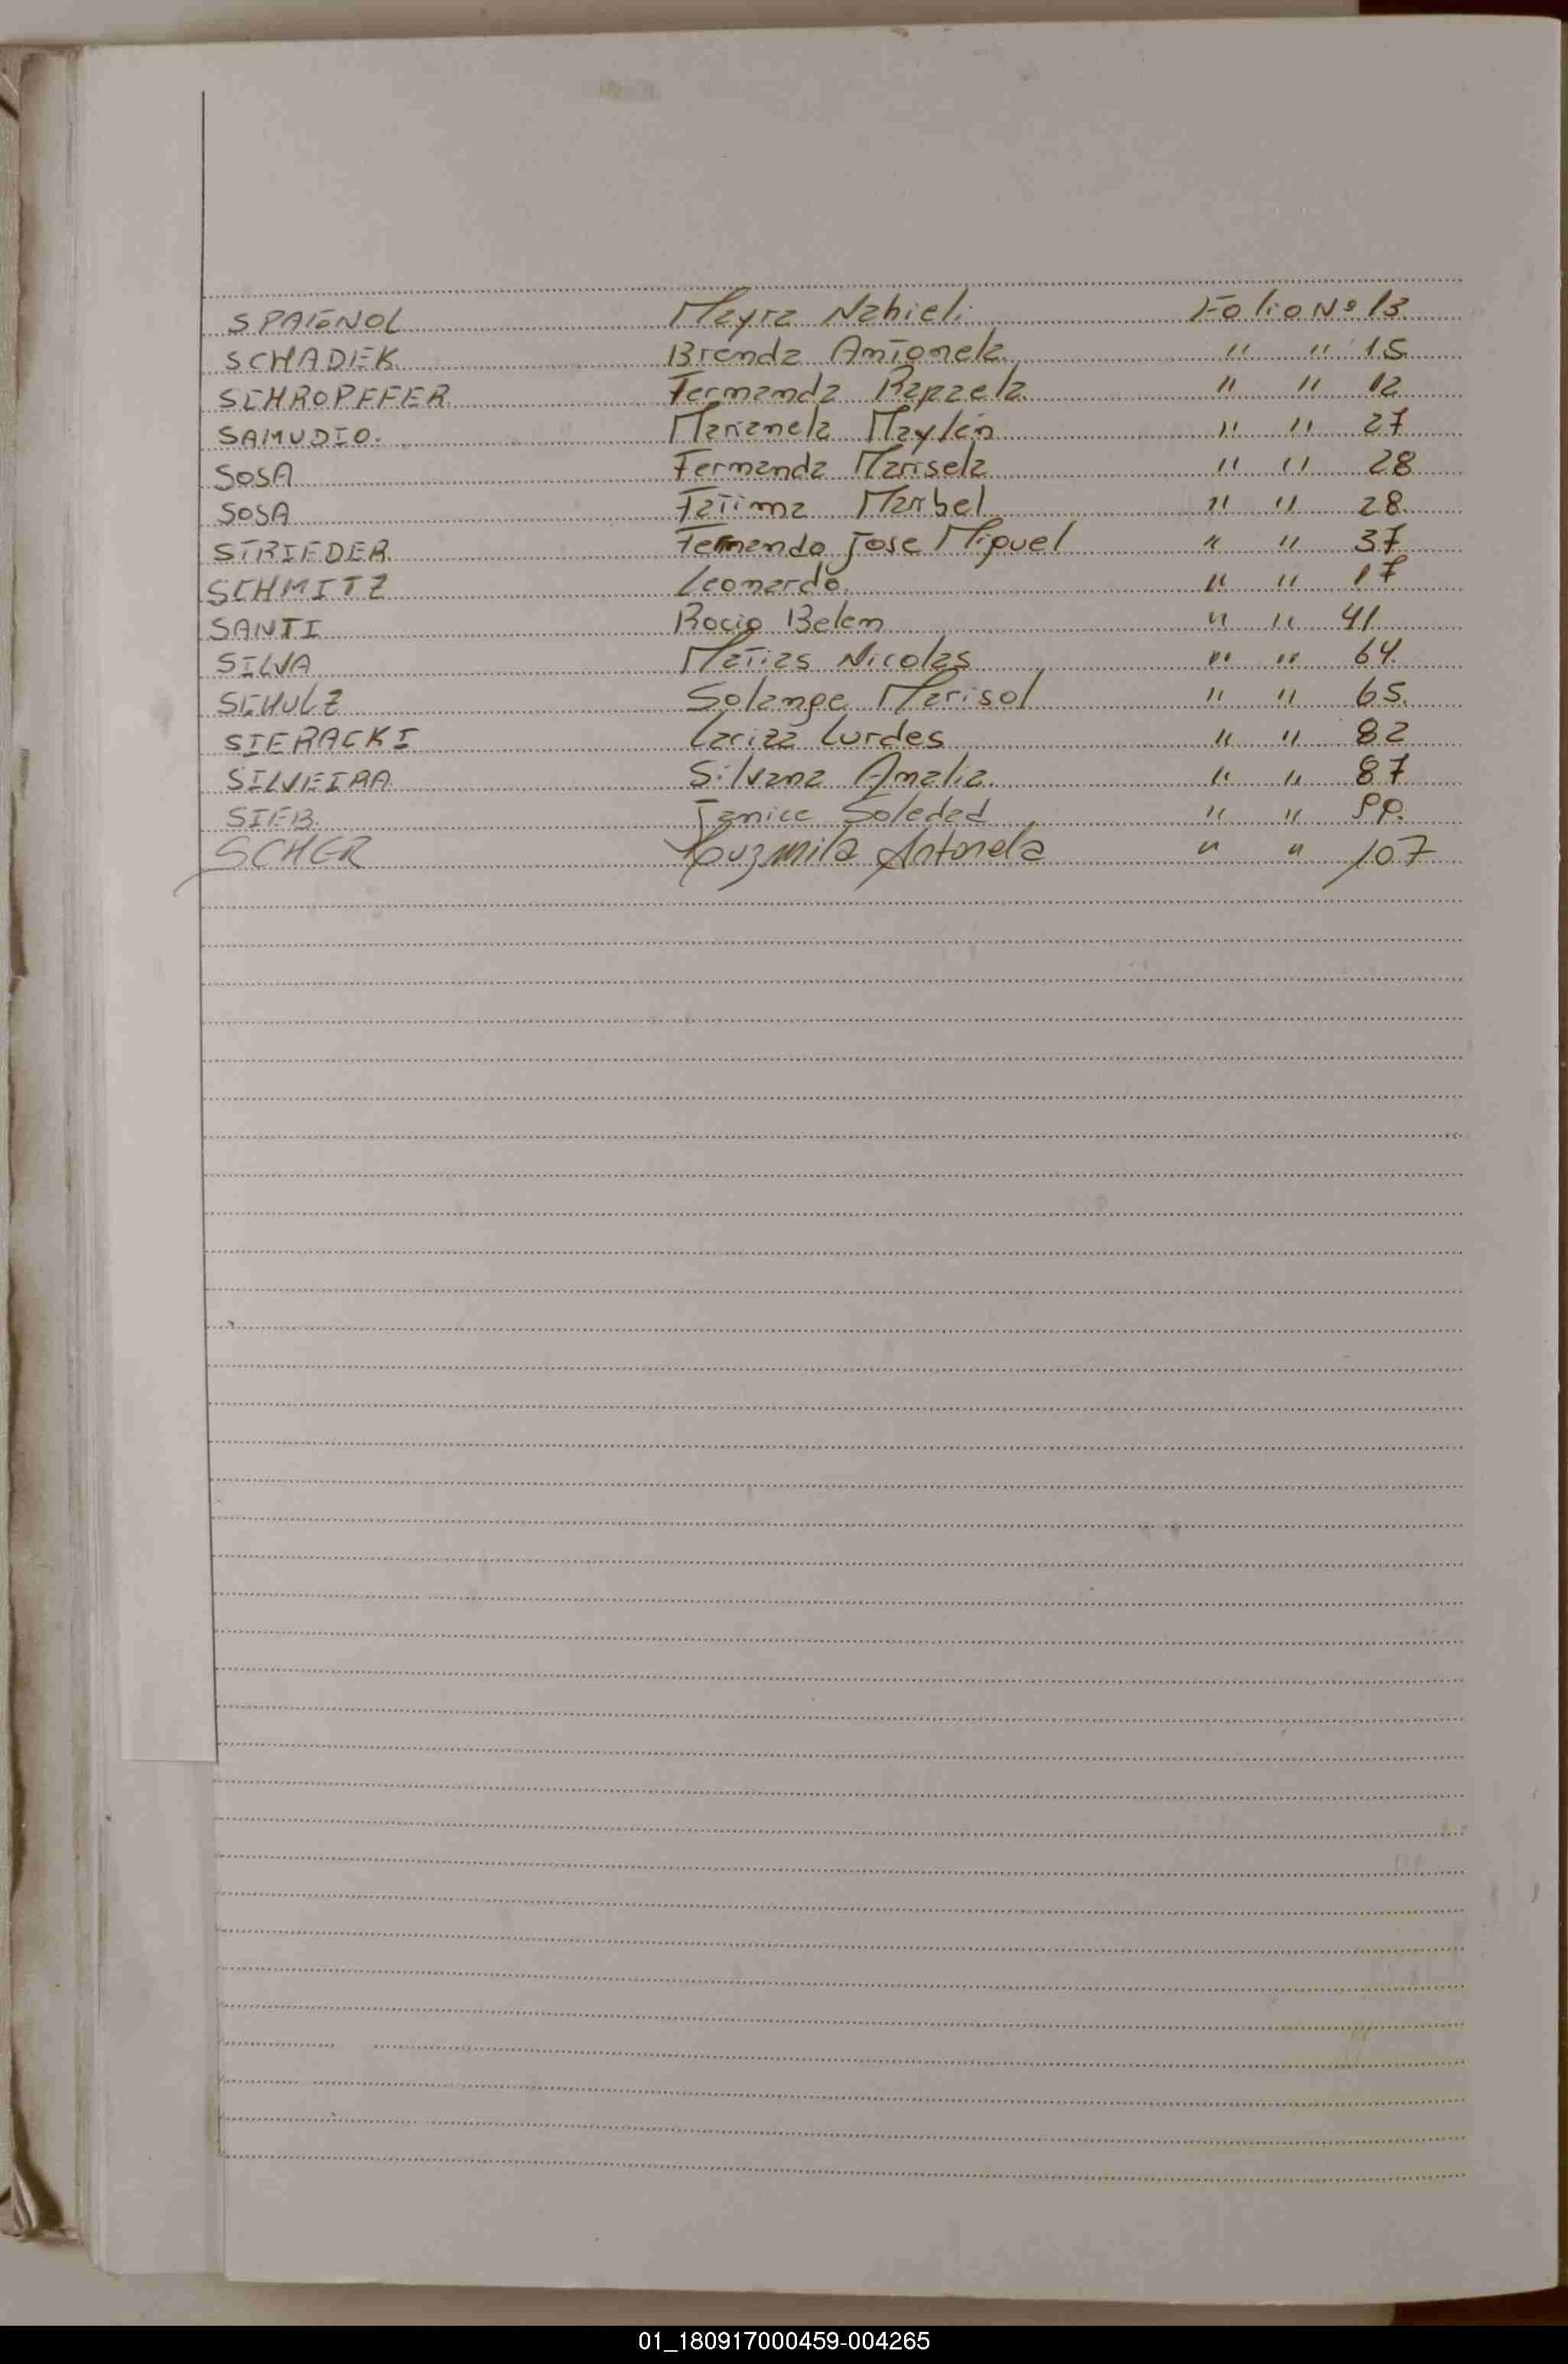 SPAGNOL Mayra Nahieli Folio Nº 13
SCHADEK Brenda Antonela " " 15
SCHROPFFER Fernanda " " 12
SAMUDIO. Marianela Maylén " " 27
SOSA Fernanda Marisela " " 28
SOSA Fatima Maribel " " 28
STRIEDER Fernando Jose Miguel " " 37
SCHMITZ Leonardo " " 17
SANTI Rocio Belen " " 41
SILVA Matias Nicolas " " 64
SCHULZ Solange Marisol " " 65
SIERACKI Lariza Lurdes " " 82
SILVEIRA Silvana Amalia. " " 87
SIEB. Janice Soledad " " 99.
SCHER Luzmila Antonela " " 107
01_180917000459-004265